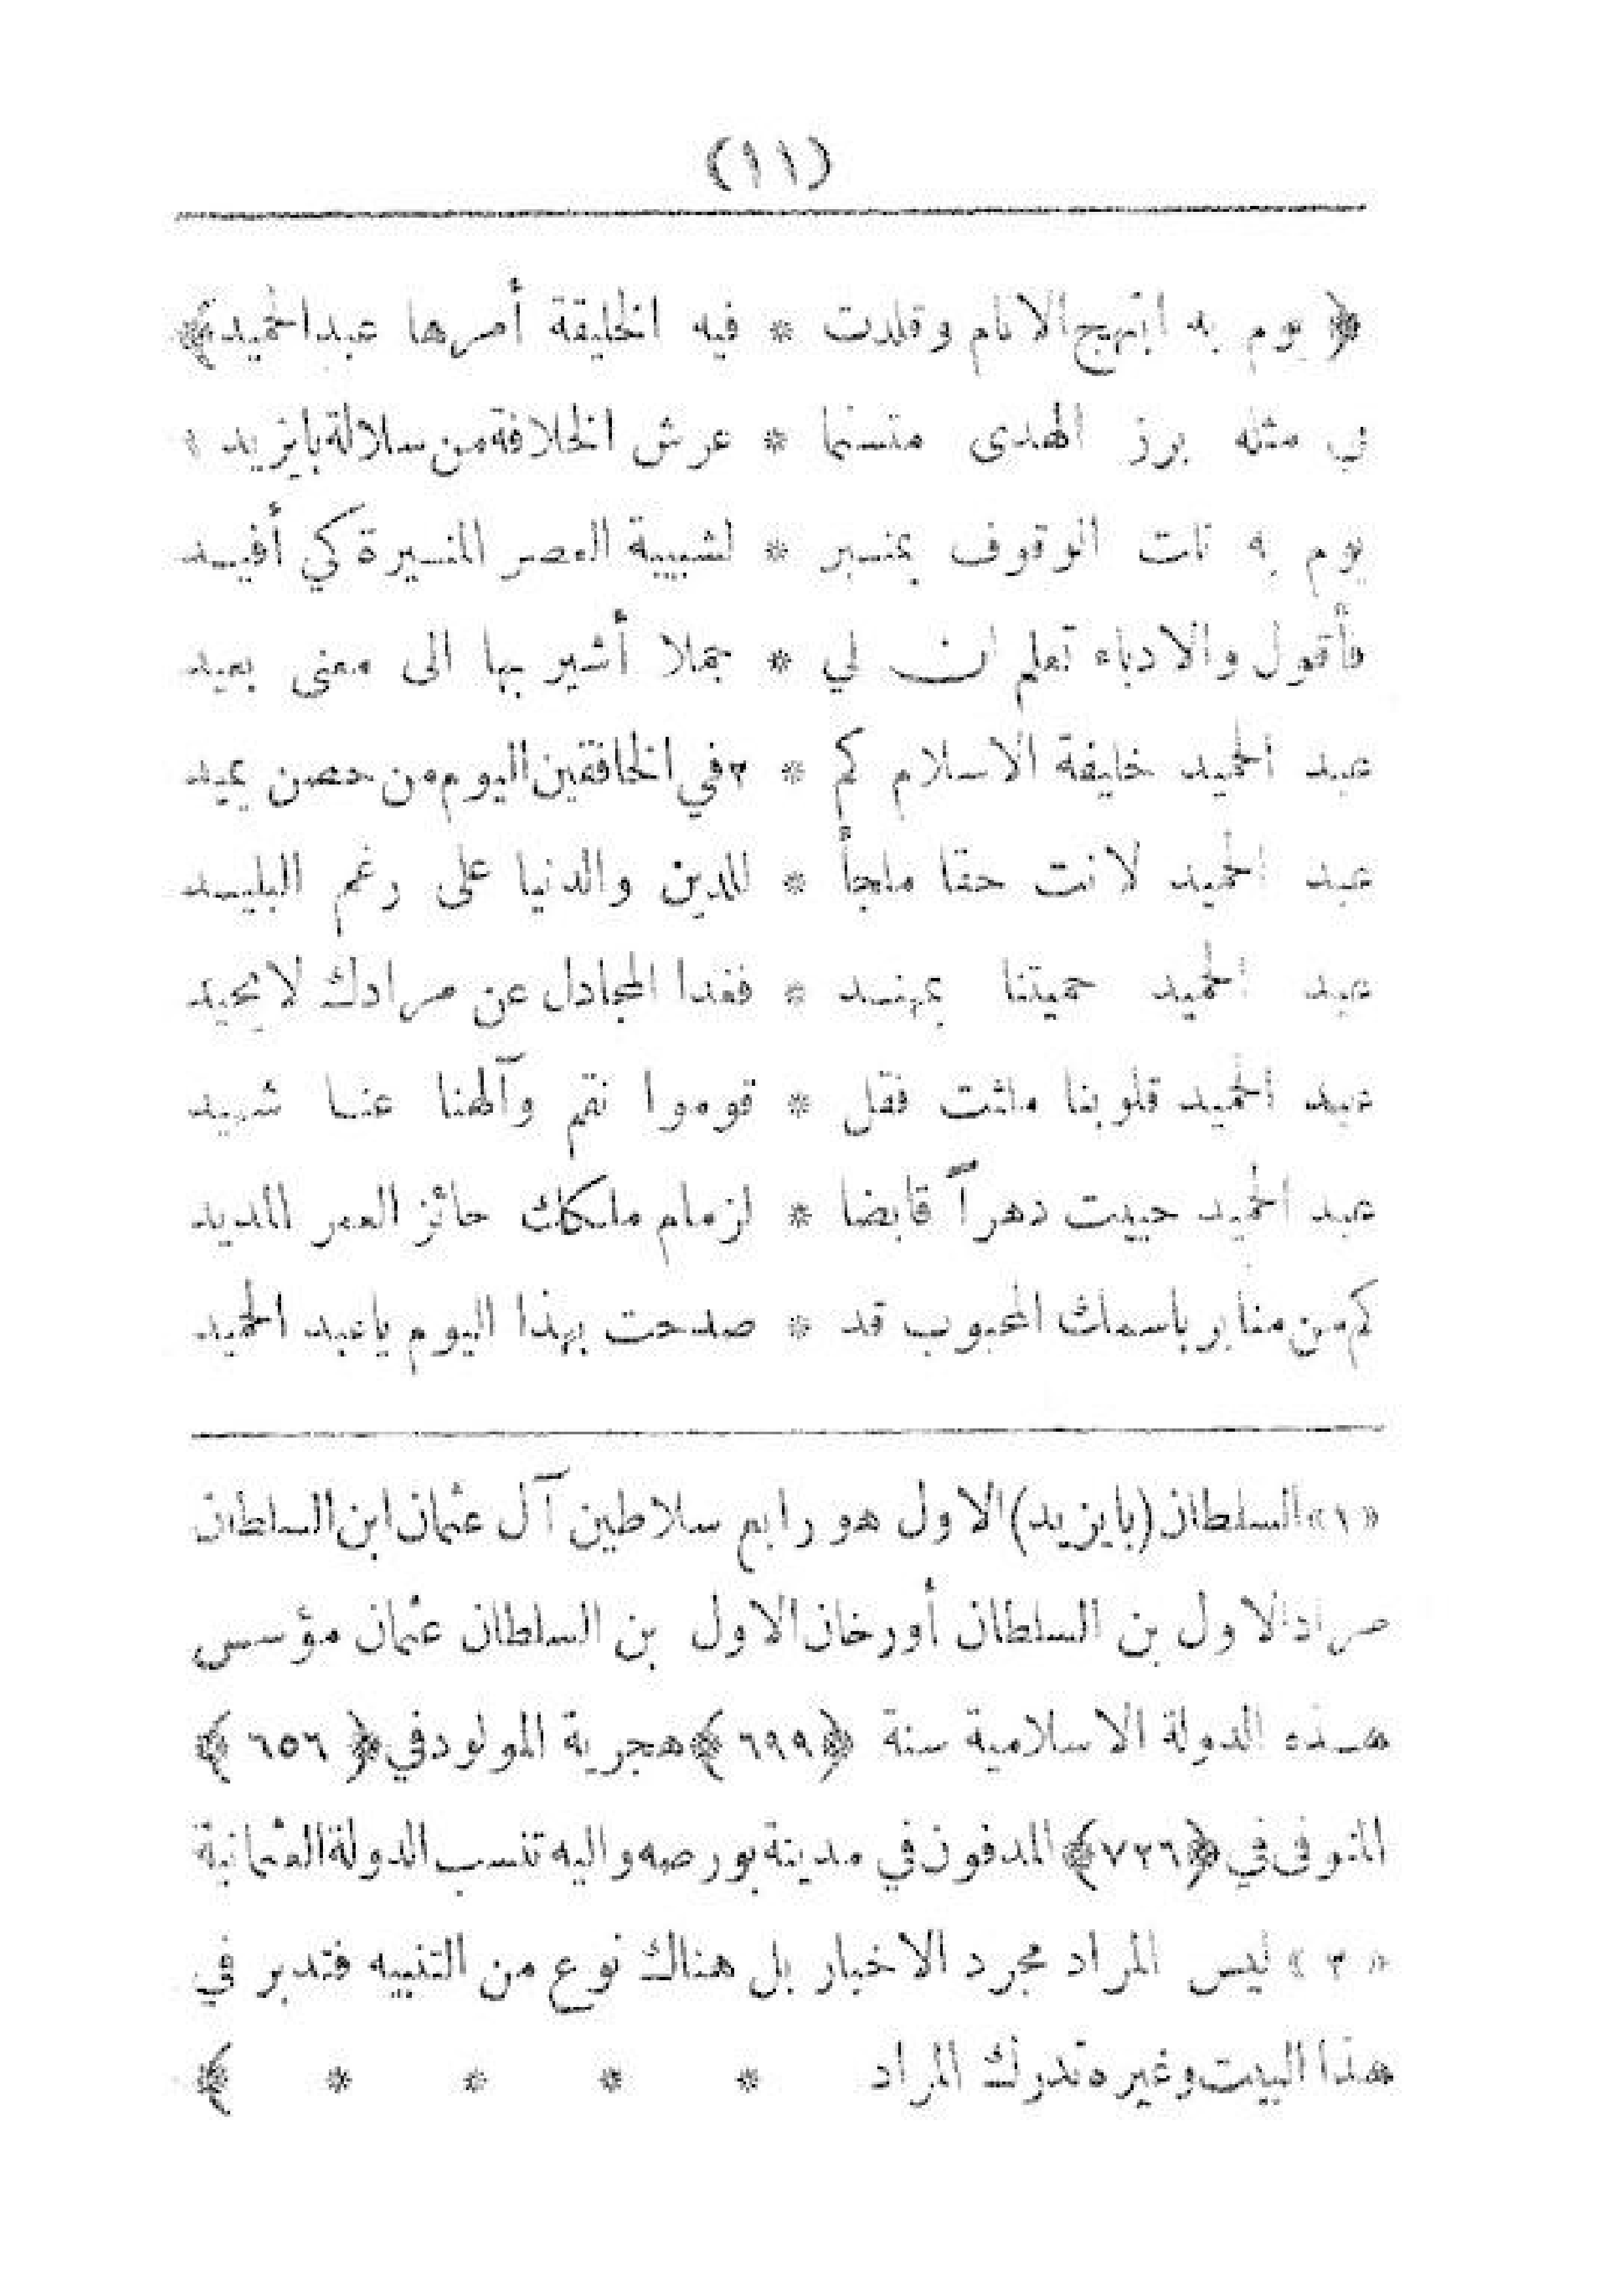 (١١)
﴿ يوم به ابتهج الانام وقلدت * فيه الخليقة أمرها عبدالحميد ﴾
في مثله برز الهدى متسنما * عرش الخلافة من سلالة بايزيد ١
يوم به نلت الوقوف بمنبر * لشبيبة العصر المنيرة كي أفيد
فأقول والادباء تعلم ان لي * جملا أشير بها الى معنى بعيد
عبد الحميد خليفة الاسلام كم * ٣ في الخافقين اليوم من حصن يميد
عبد الحميد لانت حقا ملجأ * للدين والدنيا على رغم البليد
عبد الحميد حميتنا بمهند * فغدا المجادل عن مرادك لا يحيد
عبد الحميد قلوبنا ملئت فقل * قوموا نقم وآلهنا عنا شهيد
عبد الحميد حييت دهراً قابضا * لزمام ملكك حائز العمر المديد
كم من منابر باسمك المحبوب قد * صدحت بهذا اليوم ياعبد الحميد
«١» السلطان (بايزيد) الاول هو رابع سلاطين آل عثمان ابن السلطان
مراد الاول بن السلطان أورخان الاول بن السلطان عثمان مؤسس
هذه الدولة الاسلامية سنة ﴿٦٩٩﴾ هجرية المولود في ﴿٦٥٦﴾
المتوفى في ﴿٧٢٦﴾ المدفون في مدينة بورصه واليه تنسب الدولة العثمانية
«٣» ليس المراد مجرد الاخبار بل هناك نوع من التنبيه فتدبر في
هذا البيت وغيره تدرك المراد * * * * ﴾